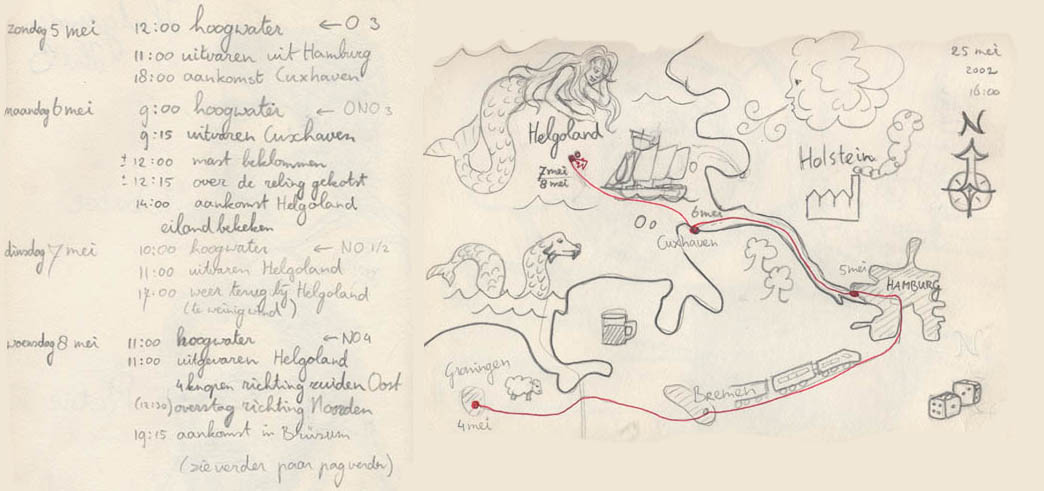 zondag 5 mei 12:00 hoogwater ← O 3
11:00 uitvaren uit Hamburg
18:00 aankomst Cuxhaven
maandag 6 mei 9:00 hoogwater ← ONO 3
9:15 uitvaren Cuxhaven
± 12:00 mast beklommen
± 12:15 over de reling gekotst
14:00 aankomst Helgoland
eiland bekeken
dinsdag 7 mei 10:00 hoogwater ← NO 1/2
11:00 uitvaren Helgoland
17:00 weer terug bij Helgoland
(te weinig wind)
woensdag 8 mei 11:00 hoogwater ← NO 4
11:00 uitgevaren Helgoland
4 knopen richting zuiden Oost
(12:30) overstag richting Noorden
19:15 aankomst in Brüsum
(zie verder paar pag verder)
25 mei
2002
16:00
N
Helgoland
7 mei
8 mei
Holstein
6 mei
Cuxhaven
5 mei
HAMBURG
Groningen
4 mei
Bremen
N